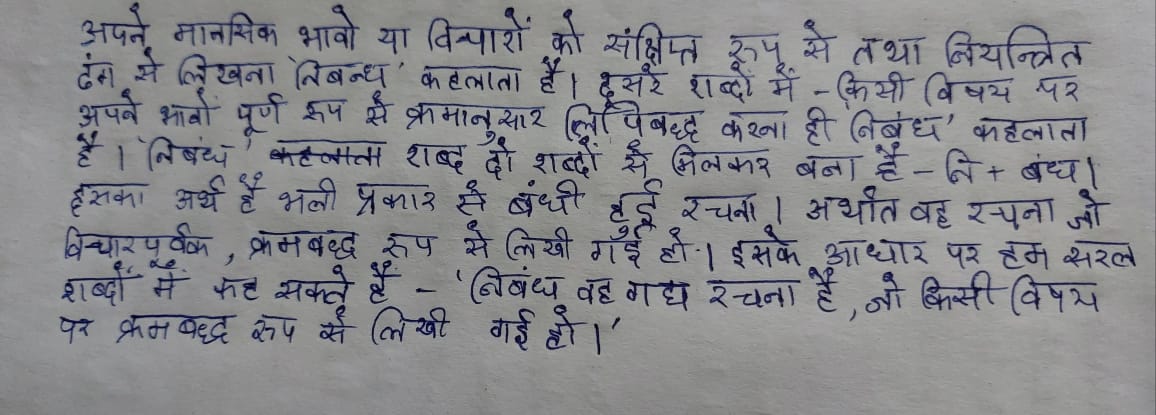 अपने मानसिक भावो या विचारों को संक्षिप्त रूप से तथा नियन्त्रित
ढंग से लिखना 'निबन्ध' कहलाता है। दूसरे शब्दों में - किसी विषय पर
अपने भावों पूर्ण रूप से क्रमानुसार लिपिबद्ध करना ही 'निबंध' कहलाता
है। 'निबंध' कहलाता शब्द दो शब्दों से मिलकर बना है - नि + बंध।
इसका अर्थ है भली प्रकार से बंधी हुई रचना। अर्थात वह रचना जो
विचारपूर्वक, क्रमबद्ध रूप से लिखी गई हो। इसके आधार पर हम सरल
शब्दों में कह सकते हैं - 'निबंध वह गद्य रचना है, जो किसी विषय
पर क्रमबद्ध रूप से लिखी गई हो।'